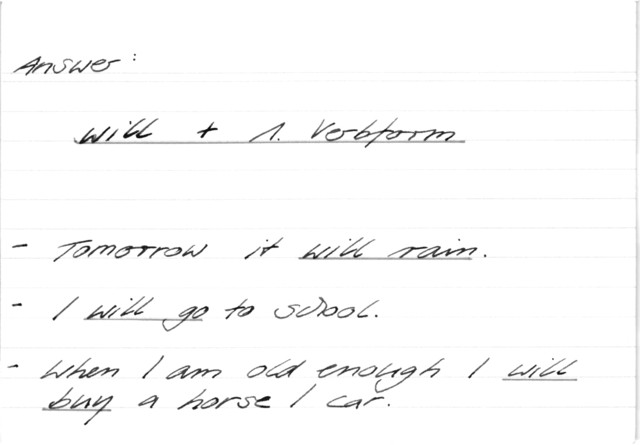 Answer:
will + 1. Verbform
- Tomorrow it will rain.
- I will go to school.
- When I am old enough I will
buy a horse / car.